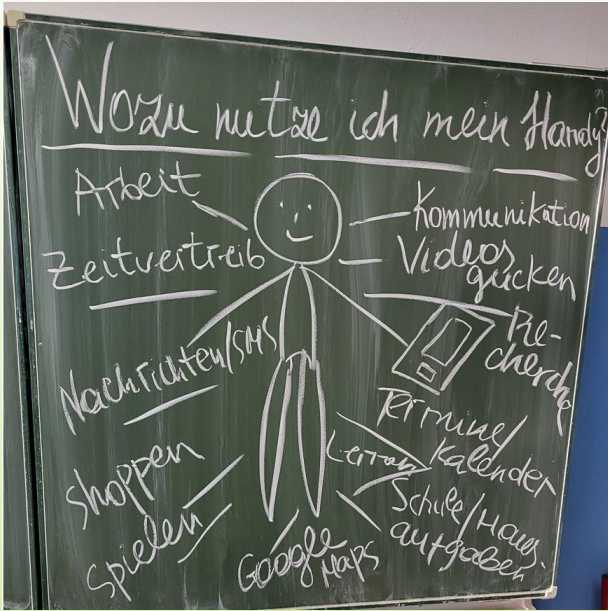 Wozu nutze ich mein Handy?
Arbeit
Zeitvertreib
Nachrichten/SMS
Shoppen
Spielen
Google
Maps
Kommunikation
Videos
gucken
Re-
cherche
Termine/
Kalender
Lernen
Schule/Haus-
aufgaben